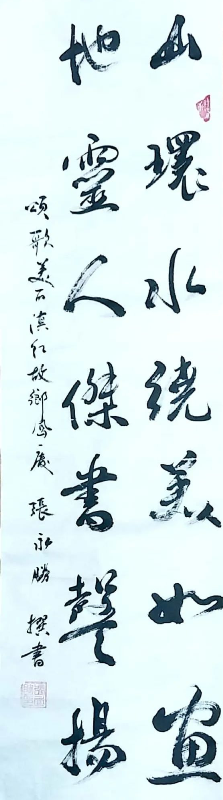 山環水繞美如画
地靈人傑書聲揚
頌歌美百濱紅故鄉 張永勝 撰書